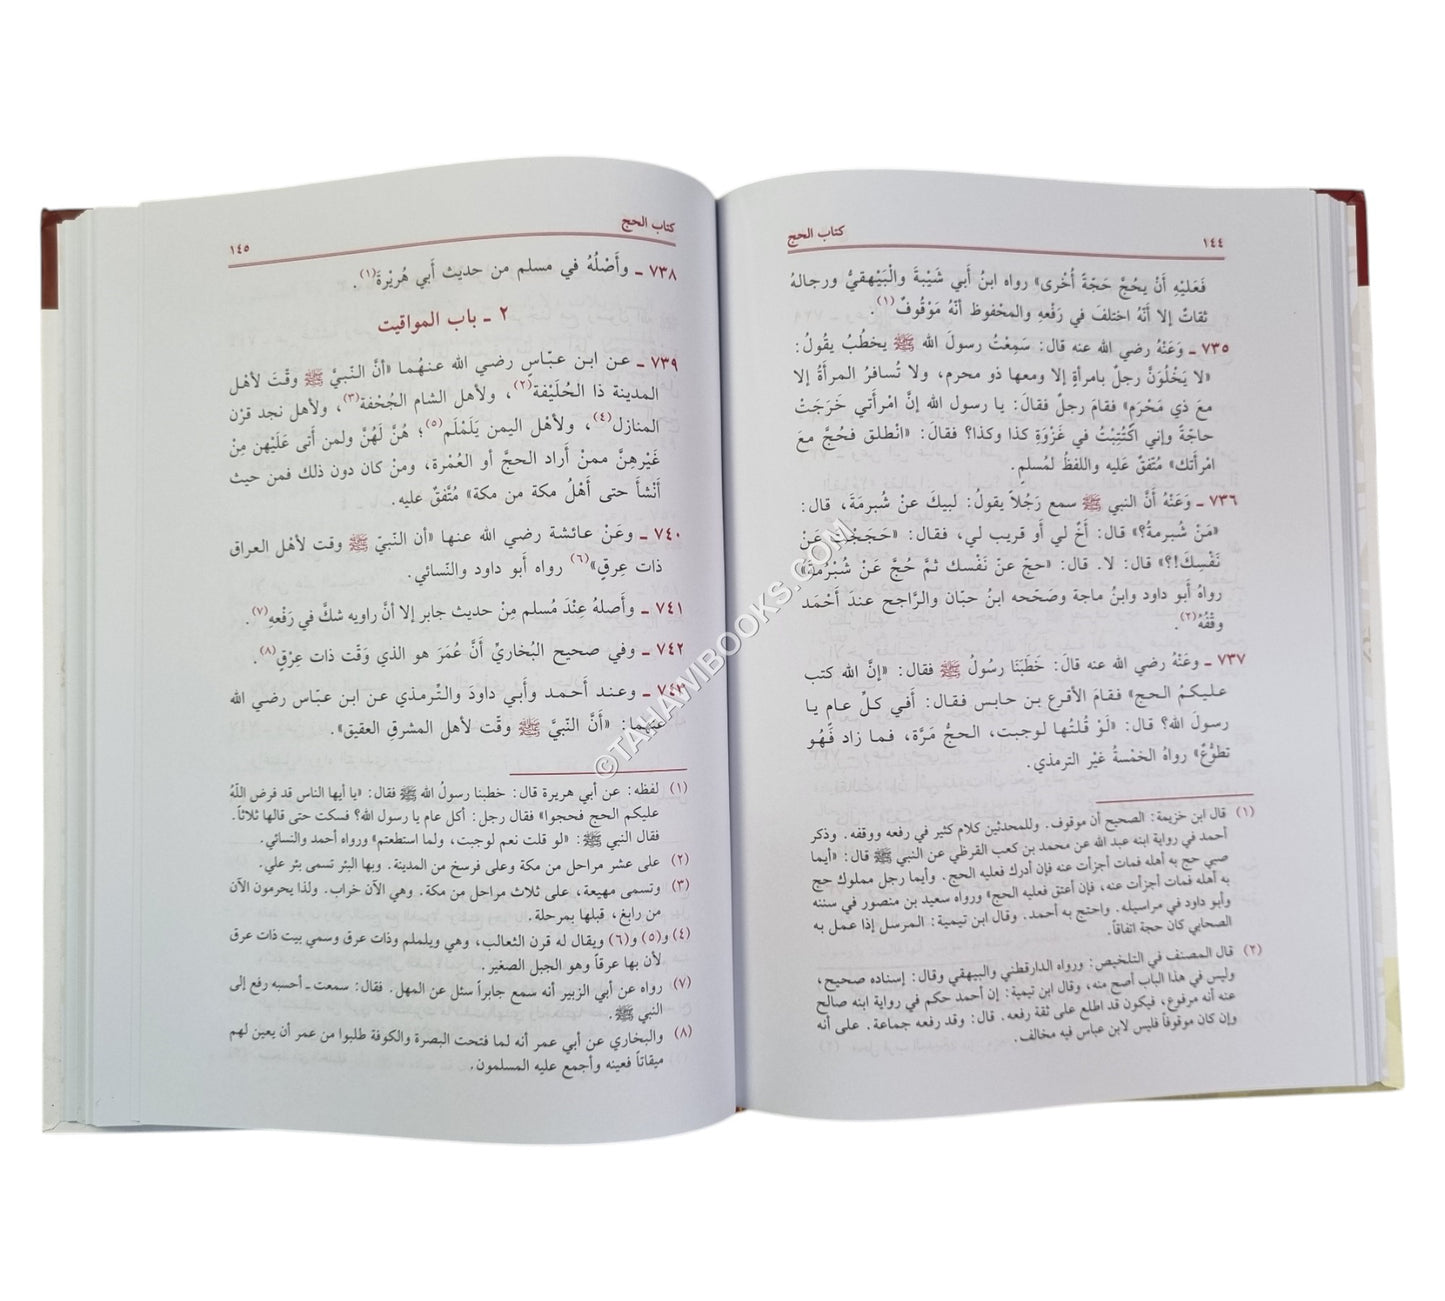 ١٤٤ كتاب الحج
فَعَليْهِ أَنْ يحُجَّ حَجّةً أُخْرى» رواه ابنُ أبي شَيْبَةَ والْبَيْهقيُّ ورجالهُ
ثقاتٌ إلا أنّهُ اختلفَ في رَفْعهِ والمحْفوظ أنّهُ مَوْقُوفٌ(١).
٧٣٥ ـ وَعَنْهُ رضي الله عنه قال: سَمِعْتُ رسولَ الله ﷺ يخطُبُ يقُولُ:
«لا يَخْلُوَنَّ رجلٌ بامرأةٍ إلا ومعها ذو محرم، ولا تُسافرُ المرأةُ إلا
معَ ذي مَحْرَمٍ» فقامَ رجلٌ فقالَ: يا رسول الله إنَّ امْرأتي خَرَجَتْ
حاجّةً وإني اكْتُتِبْتُ في غَزْوَةِ كذا وكذا؟ فقالَ: «انْطلق فحُجَّ معَ
امْرأتك» مُتّفقٌ عَليه واللفظُ لمُسلمٍ.
٧٣٦ ـ وَعَنْهُ أَنَّ النبي ﷺ سمع رَجُلاً يقولُ: لبيكَ عنْ شُبرمَةَ، قال:
«مَنْ شُبرمةُ؟» قال: أَخٌ لي أَو قريب لي، فقال: «حَجَجْتَ عَنْ
نَفْسِكَ!؟» قال: لا. قال: «حجّ عنّ نَفْسك ثمَّ حُجَّ عَنْ شُبْرُمَةَ»
رواهُ أَبو داود وابنُ ماجة وصَحّحه ابنُ حبّان والرّاجح عندَ أحْمَد
وقْفُهُ(٢).
٧٣٧ ـ وعَنْهُ رضي الله عنه قالَ: خَطَبَنَا رسُولُ ﷺ فقال: «إنَّ الله كتب
عليكمُ الحج» فقامَ الأقرع بن حابس فقال: أَفي كلِّ عام يا
رسولَ الله؟ قال: «لَوْ قُلتُها لوجبت، الحجُّ مَرَّة، فما زاد فَهُو
تطوُّعٌ» رواهُ الخمْسةُ غيْر الترمذي.
(١) قال ابن خزيمة: الصحيح أن موقوف. وللمحدثين كلام كثير في رفعه ووقفه. وذكر
أحمد في رواية ابنه عبد الله عن محمد بن كعب القرظي عن النبي ﷺ قال: «أيما
صبي حج به أهله فمات أجزأت عنه فإن أدرك فعليه الحج. وأيما رجل مملوك حج
به أهله فمات أجزأت عنه، فإن أعتق فعليه الحج» ورواه سعيد بن منصور في سننه
وأبو داود في مراسيله. واحتج به أحمد. وقال ابن تيمية: المرسل إذا عمل به
الصحابي كان حجة اتفاقاً.
(٢) قال المصنف في التلخيص: ورواه الدارقطني والبيهقي وقال: إسناده صحيح،
وليس في هذا الباب أصح منه، وقال ابن تيمية: إن أحمد حكم في رواية ابنه صالح
عنه أنه مرفوع، فيكون قد اطلع على ثقة رفعه. قال: وقد رفعه جماعة. على أنه
وإن كان موقوفاً فليس لابن عباس فيه مخالف.
كتاب الحج ١٤٥
٧٣٨ ـ وأَصْلُهُ في مسلم من حديث أَبي هُريْرةَ(١).
٢ ـ باب المواقيت
٧٣٩ ـ عن ابن عبّاس رضي الله عنهُما «أنَّ النّبيَّ ﷺ وقّتَ لأهْل
المدينة ذا الحُلَيْفة(٢)، ولأهل الشام الجُحْفة(٣)، ولأهل نجد قرْن
المنازل(٤)، ولأهْل اليمن يَلَمْلَم(٥)؛ هُنَّ لَهُنَّ ولمن أَتى عَلَيْهن مِنْ
غَيْرهِنَّ ممنْ أَراد الحجَّ أو العُمْرة، ومنْ كان دون ذلك فمن حيث
أَنْشأَ حتى أَهْلُ مكة من مكة» مُتَّفقٌ عليه.
٧٤٠ ـ وعَنْ عائشة رضي الله عنها «أن النّبيّ ﷺ وقت لأهل العراق
ذات عِرقٍ»(٦) رواه أَبو داود والنّسائي.
٧٤١ ـ وأَصلهُ عِنْدَ مُسلم مِنْ حديث جابر إلا أنَّ راويه شكَّ في رَفْعهِ(٧).
٧٤٢ ـ وفي صحيح البُخاريِّ أَنَّ عُمَرَ هو الذي وَقّت ذات عِرْقٍ(٨).
٧٤٣ ـ وعند أَحمد وأَبي داودَ والتّرمذي عن ابن عبّاس رضي الله
عنهما: «أَنَّ النّبيَّ ﷺ وقّت لأهل المشرق العقيق».
(١) لفظه: عن أبي هريرة قال: خطبنا رسولُ الله ﷺ فقال: «يا أيها الناس قد فرض اللهُ
عليكم الحج فحجوا» فقال رجل: أكل عام يا رسول الله؟ فسكت حتى قالها ثلاثاً.
فقال النبي ﷺ: «لو قلت نعم لوجبت، ولما استطعتم» ورواه أحمد والنسائي.
(٢) على عشر مراحل من مكة وعلى فرسخ من المدينة. وبها البئر تسمى بئر علي.
(٣) وتسمى مهيعة، على ثلاث مراحل من مكة. وهي الآن خراب. ولذا يحرمون الآن
من رابغ، قبلها بمرحلة.
(٤) و(٥) و(٦) ويقال له قرن الثعالب، وهي ويلملم وذات عرق وسمي بيت ذات عرق
لأن بها عرقاً وهو الجبل الصغير.
(٧) رواه عن أبي الزبير أنه سمع جابراً سئل عن المهل. فقال: سمعت ـ أحسبه رفع إلى
النبي ﷺ.
(٨) والبخاري عن أبي عمر أنه لما فتحت البصرة والكوفة طلبوا من عمر أن يعين لهم
ميقاتاً فعينه وأجمع عليه المسلمون.
©TAHAWIBOOKS.COM